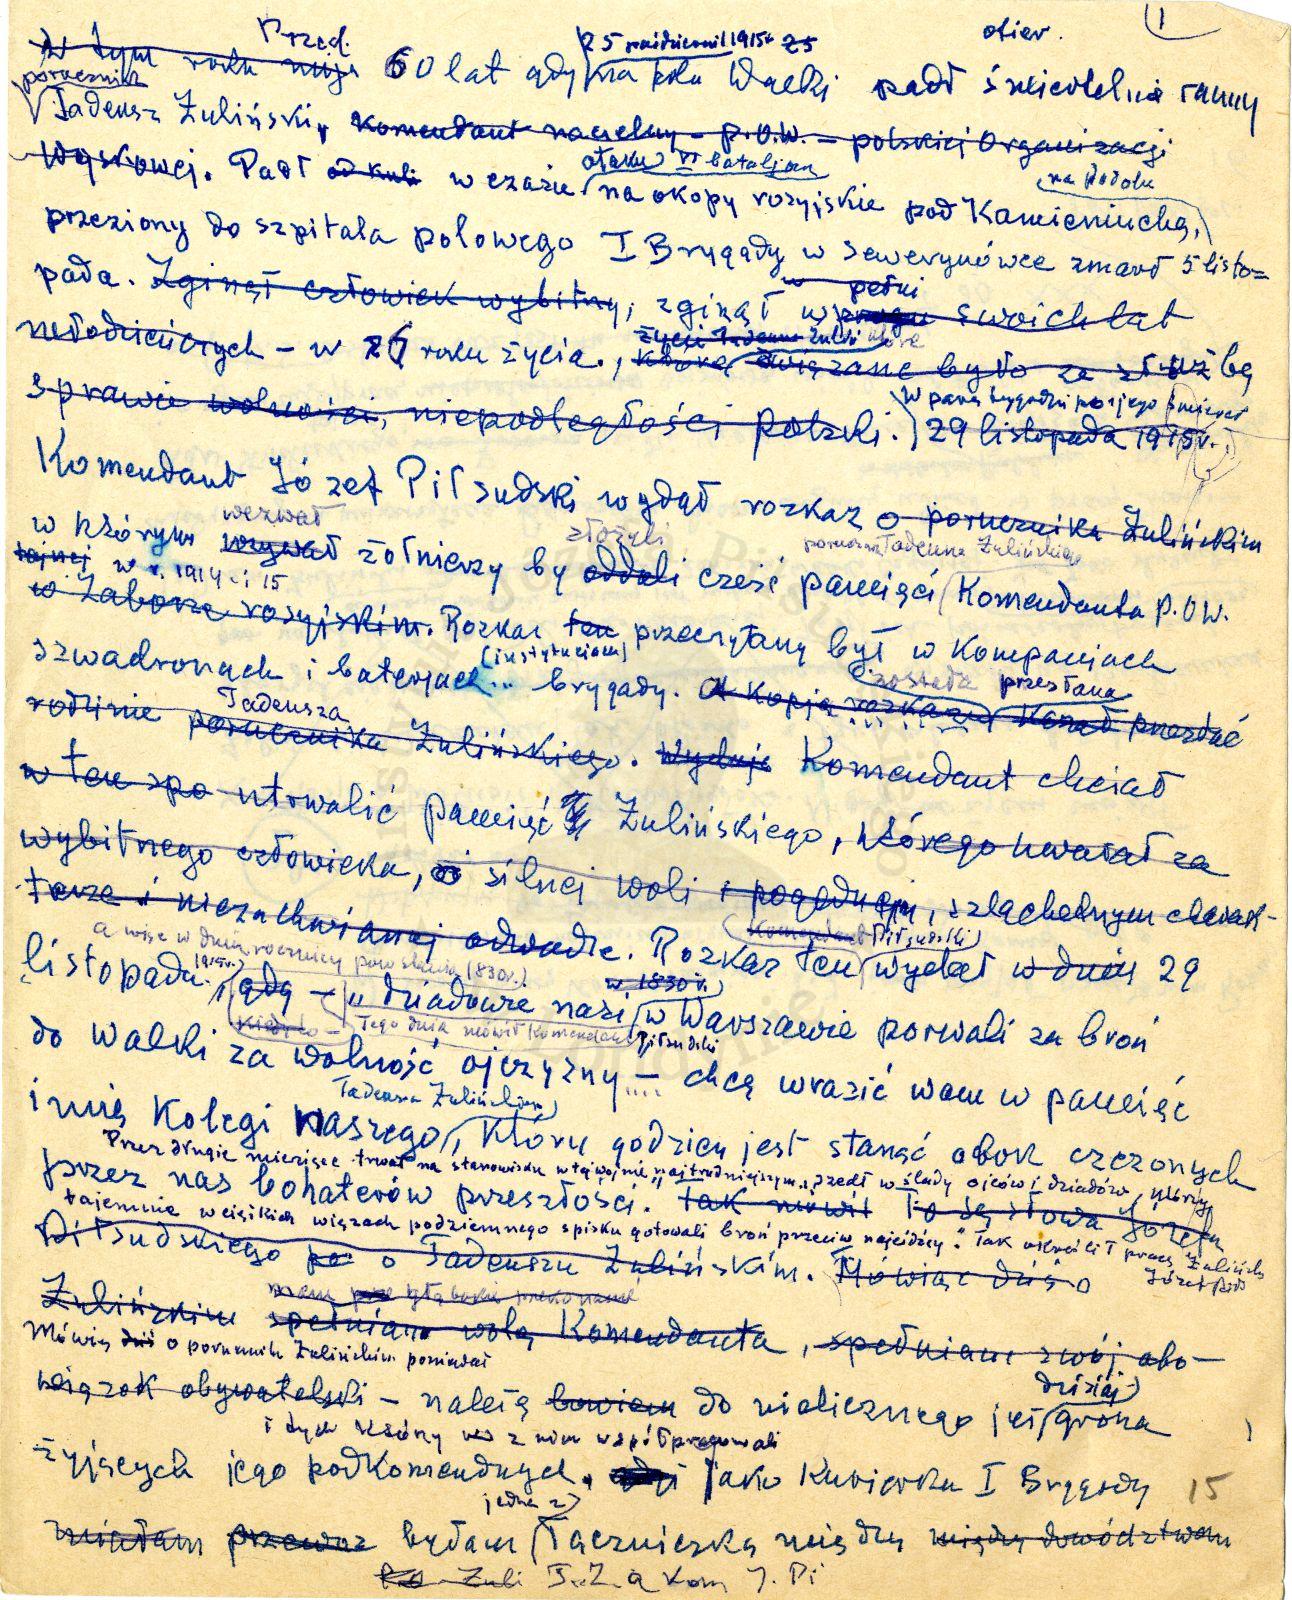 Przed. 25 październ. 1915r 25 otier. 1
W tym roku mija 60 lat gdy na polu walki padł śmiertelnie ranny
porucznik
Tadeusz Żuliński, Komendant naczelny – P.O.W. – polskiej Organizacji
ataku VI bataljonu na Podolu
Wojskowej. Padł od kuli w czasie na okopy rosyjskie pod Kamieniuchą,
przeziony do szpitala polowego I Brygady w Sewerynówce zmarł 5 listo=
w pełni
pada. Zginął człowiek wybitny, zginął w progu swoich lat
życie Tadeusza Żuliń które
młodzieńczych – w 26 roku życia., które związane było ze służbą
w parę tygodni po jego śmierci
sprawie wolności, niepodległości Polski. 29 listopada 1915r.
Komendant Józef Piłsudski wydał rozkaz o porucznika Żulińskim
wezwał złożyli porucznika Tadeusza Żulińskiego
w którym wzywał żołnierzy by oddali cześć pamięci Komendanta P.O.W.
tajnej w r. 1914 i 15
w Zaborze rosyjskim. Rozkaz ten przeczytany był w Kompaniach
(instytucjach) została przesłana
szwadronach i baterjach... brygady. A kopja rozkazu Kazał przesłać
Tadeusza
rodzinie porucznika Żulińskiego. Wydając Komendant chciał
w ten spo utrwalić pamięć Żulińskiego, którego uważał za
wybitnego człowieka, o silnej woli i pogodnym, szlachetnym charak-
terze i niezachwianej odwadze. Rozkaz ten wydał w dniu 29
Komendant Piłsudski
a więc w dniu rocznicy powstania (1830r.)
listopada 1915r. gdy – „dziadowie nasi w Warszawie porwali za broń
w 1830r.
Kiedy to – Tego dnia mówił Komendant Piłsudski
do walki za wolność ojczyzny .... – chcę wrazić wam w pamięć
Tadeusza Żulińskiego
imię Kolegi naszego, który godzien jest stanąć obok czczonych
Przez długie miesiące trwał na stanowisku w tej wojnie „najtrudniejszym„ szedł w ślady ojców i dziadów, którzy
przez nas bohaterów przeszłości. tak mówił To są słowa Józefa
tajemnie w ciężkich więzach podziemnego spisku gotowali broń przeciw najeźdźcy." Tak określił pracę Żulińskiego
Józef Piłs
Piłsudskiego po o Tadeuszu Żulińskim. Mówiąc dziś o
mam głębokie przekonanie
Żulińskim spełniam wolę Komendanta, spełniam swój obo-
Mówię dziś o poruczniku Żulińskim ponieważ
wiązek obywatelski – należę bowiem do nielicznego już grona
dzisiaj
i tych którzy z nim współpracowali
żyjących jego podkomendnych. Jako Kurierka I Brygady 15
jedną z
miałam przewoz byłam łączniczką między między dowództwem
Żuli T. Ż. a Kom J. Pi